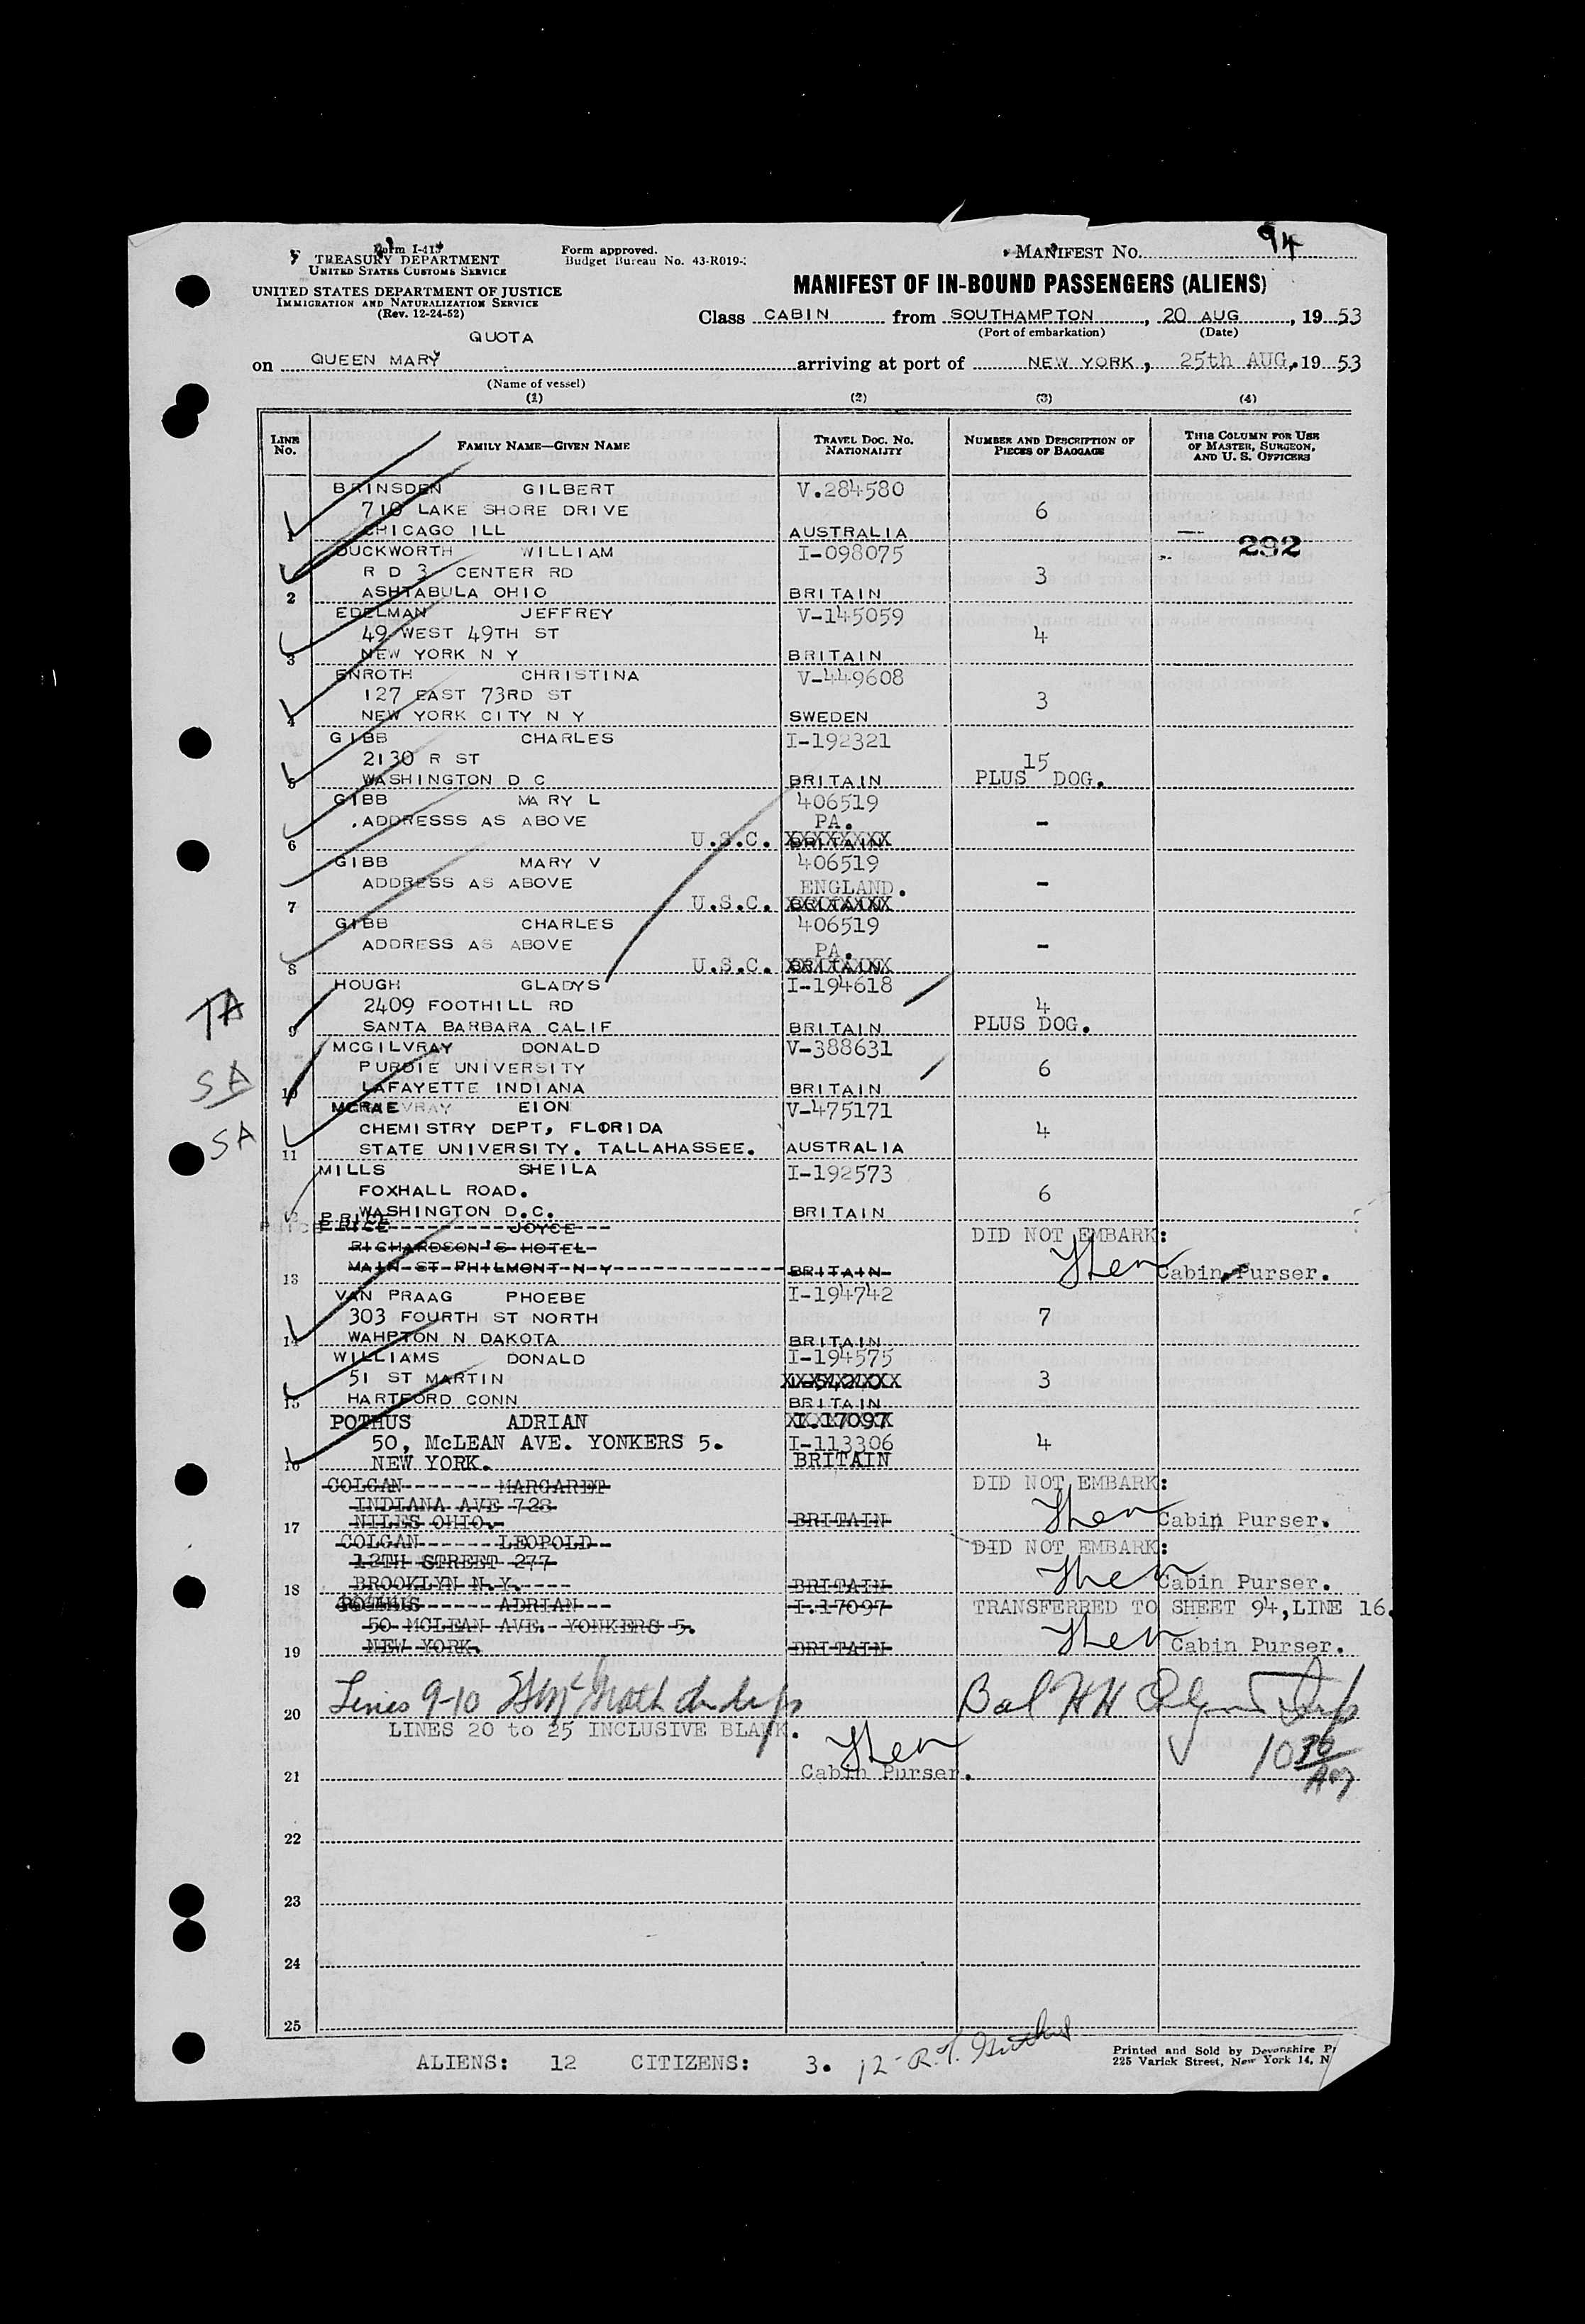 Form I-415
TREASURY DEPARTMENT
UNITED STATES CUSTOMS SERVICE
UNITED STATES DEPARTMENT OF JUSTICE
IMMIGRATION AND NATURALIZATION SERVICE
(Rev. 12-24-52)
Form approved.
Budget Bureau No. 43-R019-
MANIFEST NO. 94
MANIFEST OF IN-BOUND PASSENGERS (ALIENS)
Class CABIN from SOUTHAMPTON, 20 AUG, 1953
(Port of embarkation) (Date)
QUOTA
on QUEEN MARY arriving at port of NEW YORK, 25th AUG, 1953
(Name of vessel)
(1) (2) (3) (4)
LINE No. FAMILY NAME—GIVEN NAME TRAVEL DOC. NO. NATIONALITY NUMBER AND DESCRIPTION OF PIECES OF BAGGAGE THIS COLUMN FOR USE OF MASTER, SURGEON, AND U. S. OFFICERS
BRINSDEN GILBERT V.284580
710 LAKE SHORE DRIVE 6
1 CHICAGO ILL AUSTRALIA
DUCKWORTH WILLIAM I-098075 292
R D 3 CENTER RD 3
2 ASHTABULA OHIO BRITAIN
EDELMAN JEFFREY V-145059
49 WEST 49TH ST 4
3 NEW YORK N Y BRITAIN
ENROTH CHRISTINA V-449608
127 EAST 73RD ST 3
4 NEW YORK CITY N Y SWEDEN
GIBB CHARLES I-192321
2130 R ST 15
5 WASHINGTON D C BRITAIN PLUS DOG.
GIBB MARY L 406519
.ADDRESSS AS ABOVE PA. -
6 U.S.C. BRITAIN
GIBB MARY V 406519
ADDRESS AS ABOVE ENGLAND. -
7 U.S.C. BRITAIN
GIBB CHARLES 406519
ADDRESS AS ABOVE PA. -
8 U.S.C. BRITAIN
HOUGH GLADYS I-194618
TA 2409 FOOTHILL RD 4
9 SANTA BARBARA CALIF BRITAIN PLUS DOG.
MCGILVRAY DONALD V-388631
SA PURDIE UNIVERSITY 6
10 LAFAYETTE INDIANA BRITAIN
MCRAE EION V-475171
SA CHEMISTRY DEPT, FLORIDA 4
11 STATE UNIVERSITY. TALLAHASSEE. AUSTRALIA
MILLS SHEILA I-192573
FOXHALL ROAD. 6
12 WASHINGTON D.C. BRITAIN
PRICE JOYCE DID NOT EMBARK:
RICHARDSON'S HOTEL
13 MAIN ST PHILMONT N Y BRITAIN Cabin Purser.
VAN PRAAG PHOEBE I-194742
303 FOURTH ST NORTH 7
14 WAHPTON N DAKOTA BRITAIN
WILLIAMS DONALD I-194575
51 ST MARTIN 3
15 HARTFORD CONN BRITAIN
POTHUS ADRIAN I.17097
50, McLEAN AVE. YONKERS 5. I-113306 4
16 NEW YORK. BRITAIN
COLGAN MARGARET DID NOT EMBARK:
INDIANA AVE 728
17 NILES OHIO. BRITAIN Cabin Purser.
COLGAN LEOPOLD DID NOT EMBARK:
12TH STREET 277
18 BROOKLYN N.Y. BRITAIN Cabin Purser.
POTHUS ADRIAN I.17097 TRANSFERRED TO SHEET 94, LINE 16.
50 MCLEAN AVE. YONKERS 5.
19 NEW YORK. BRITAIN Cabin Purser.
20 Lines 9-10
LINES 20 to 25 INCLUSIVE BLANK.
10 30 AM
21 Cabin Purser.
22
23
24
25
ALIENS: 12 CITIZENS: 3. 12-R.T.
Printed and Sold by Devonshire
225 Varick Street, New York 14, N